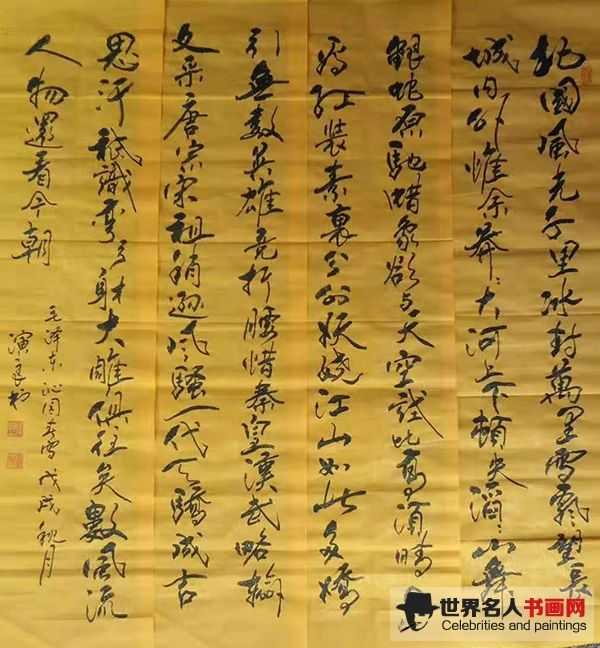 北國風光千里冰封萬里雪飄望長
城内外惟余莽々大河上下頓失滔々山舞
銀蛇原馳蜡象欲与天空試比高須晴日
看红装素裹分外妖娆江山如此多嬌
引無數英雄竞折腰惜秦皇漢武略輸
文采唐宗宋祖稍逊风騷一代天驕成吉
思汗祇識彎弓射大雕俱往矣數風流
人物還看今朝
毛泽东沁园春雪戊戌秋月
世界名人书画网
Celebrities and paintings